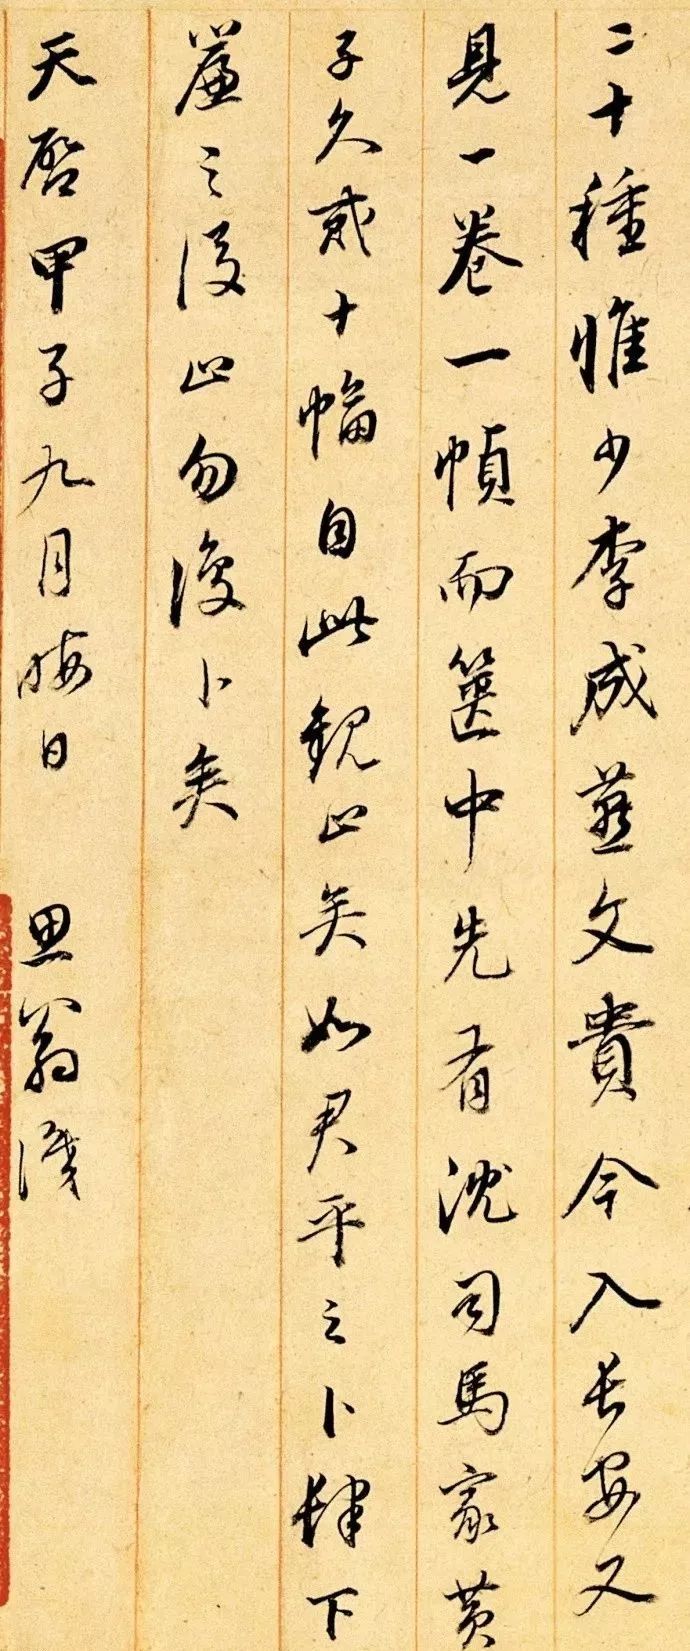 二十種惟少李成燕文貴今入長安又
見一卷一幀而篋中先有沈司馬家黄
子久貳十幅自此觀止矣如君平之卜肆下
簾之後止勿復卜矣
天啓甲子九月晦日 思翁識